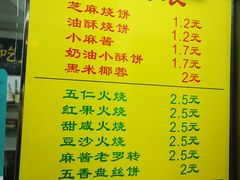 芝麻烧饼 1.2元
油酥烧饼 1.2元
小麻酱 1.7元
奶油小酥饼 1.7元
黑米椰蓉 2元
五仁火烧 2.5元
红果火烧 2.5元
甜咸火烧 2.5元
豆沙火烧 2.5元
麻酱老罗转 2.5元
五香盘丝饼 2元